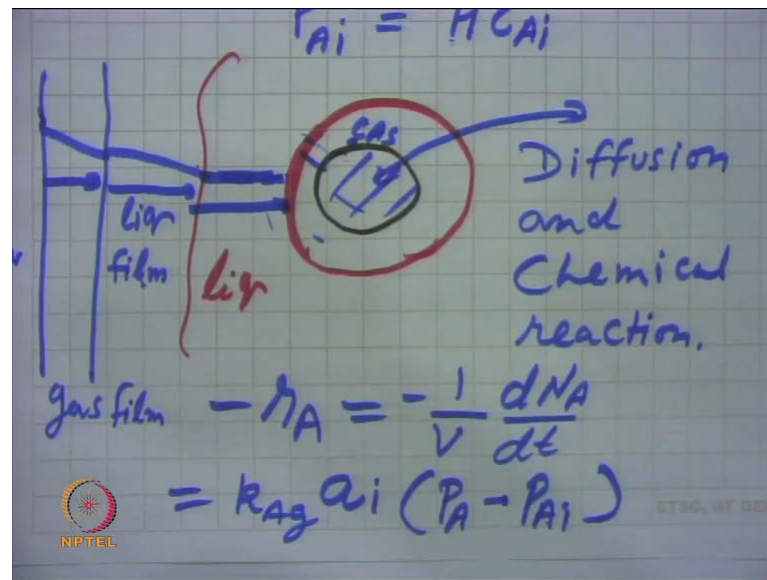 PAi = HCAi
liq
film
liq
Diffusion
and
Chemical
reaction.
gas film
-rA = - 1/V dNA/dt
= kAg ai (PA - PAi)
NPTEL